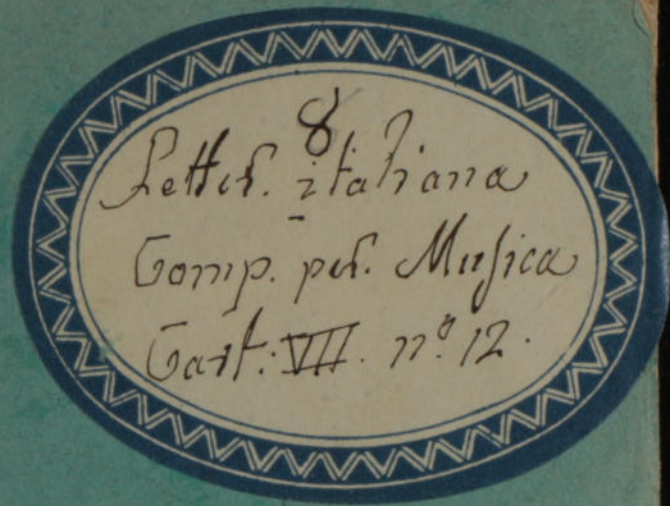 8
Letter. italiana
Comp. per. Musica
Cart: VII. nº. 12.